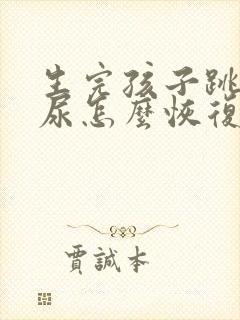 生完孩子跳
尿怎麼恢復
賈誠本